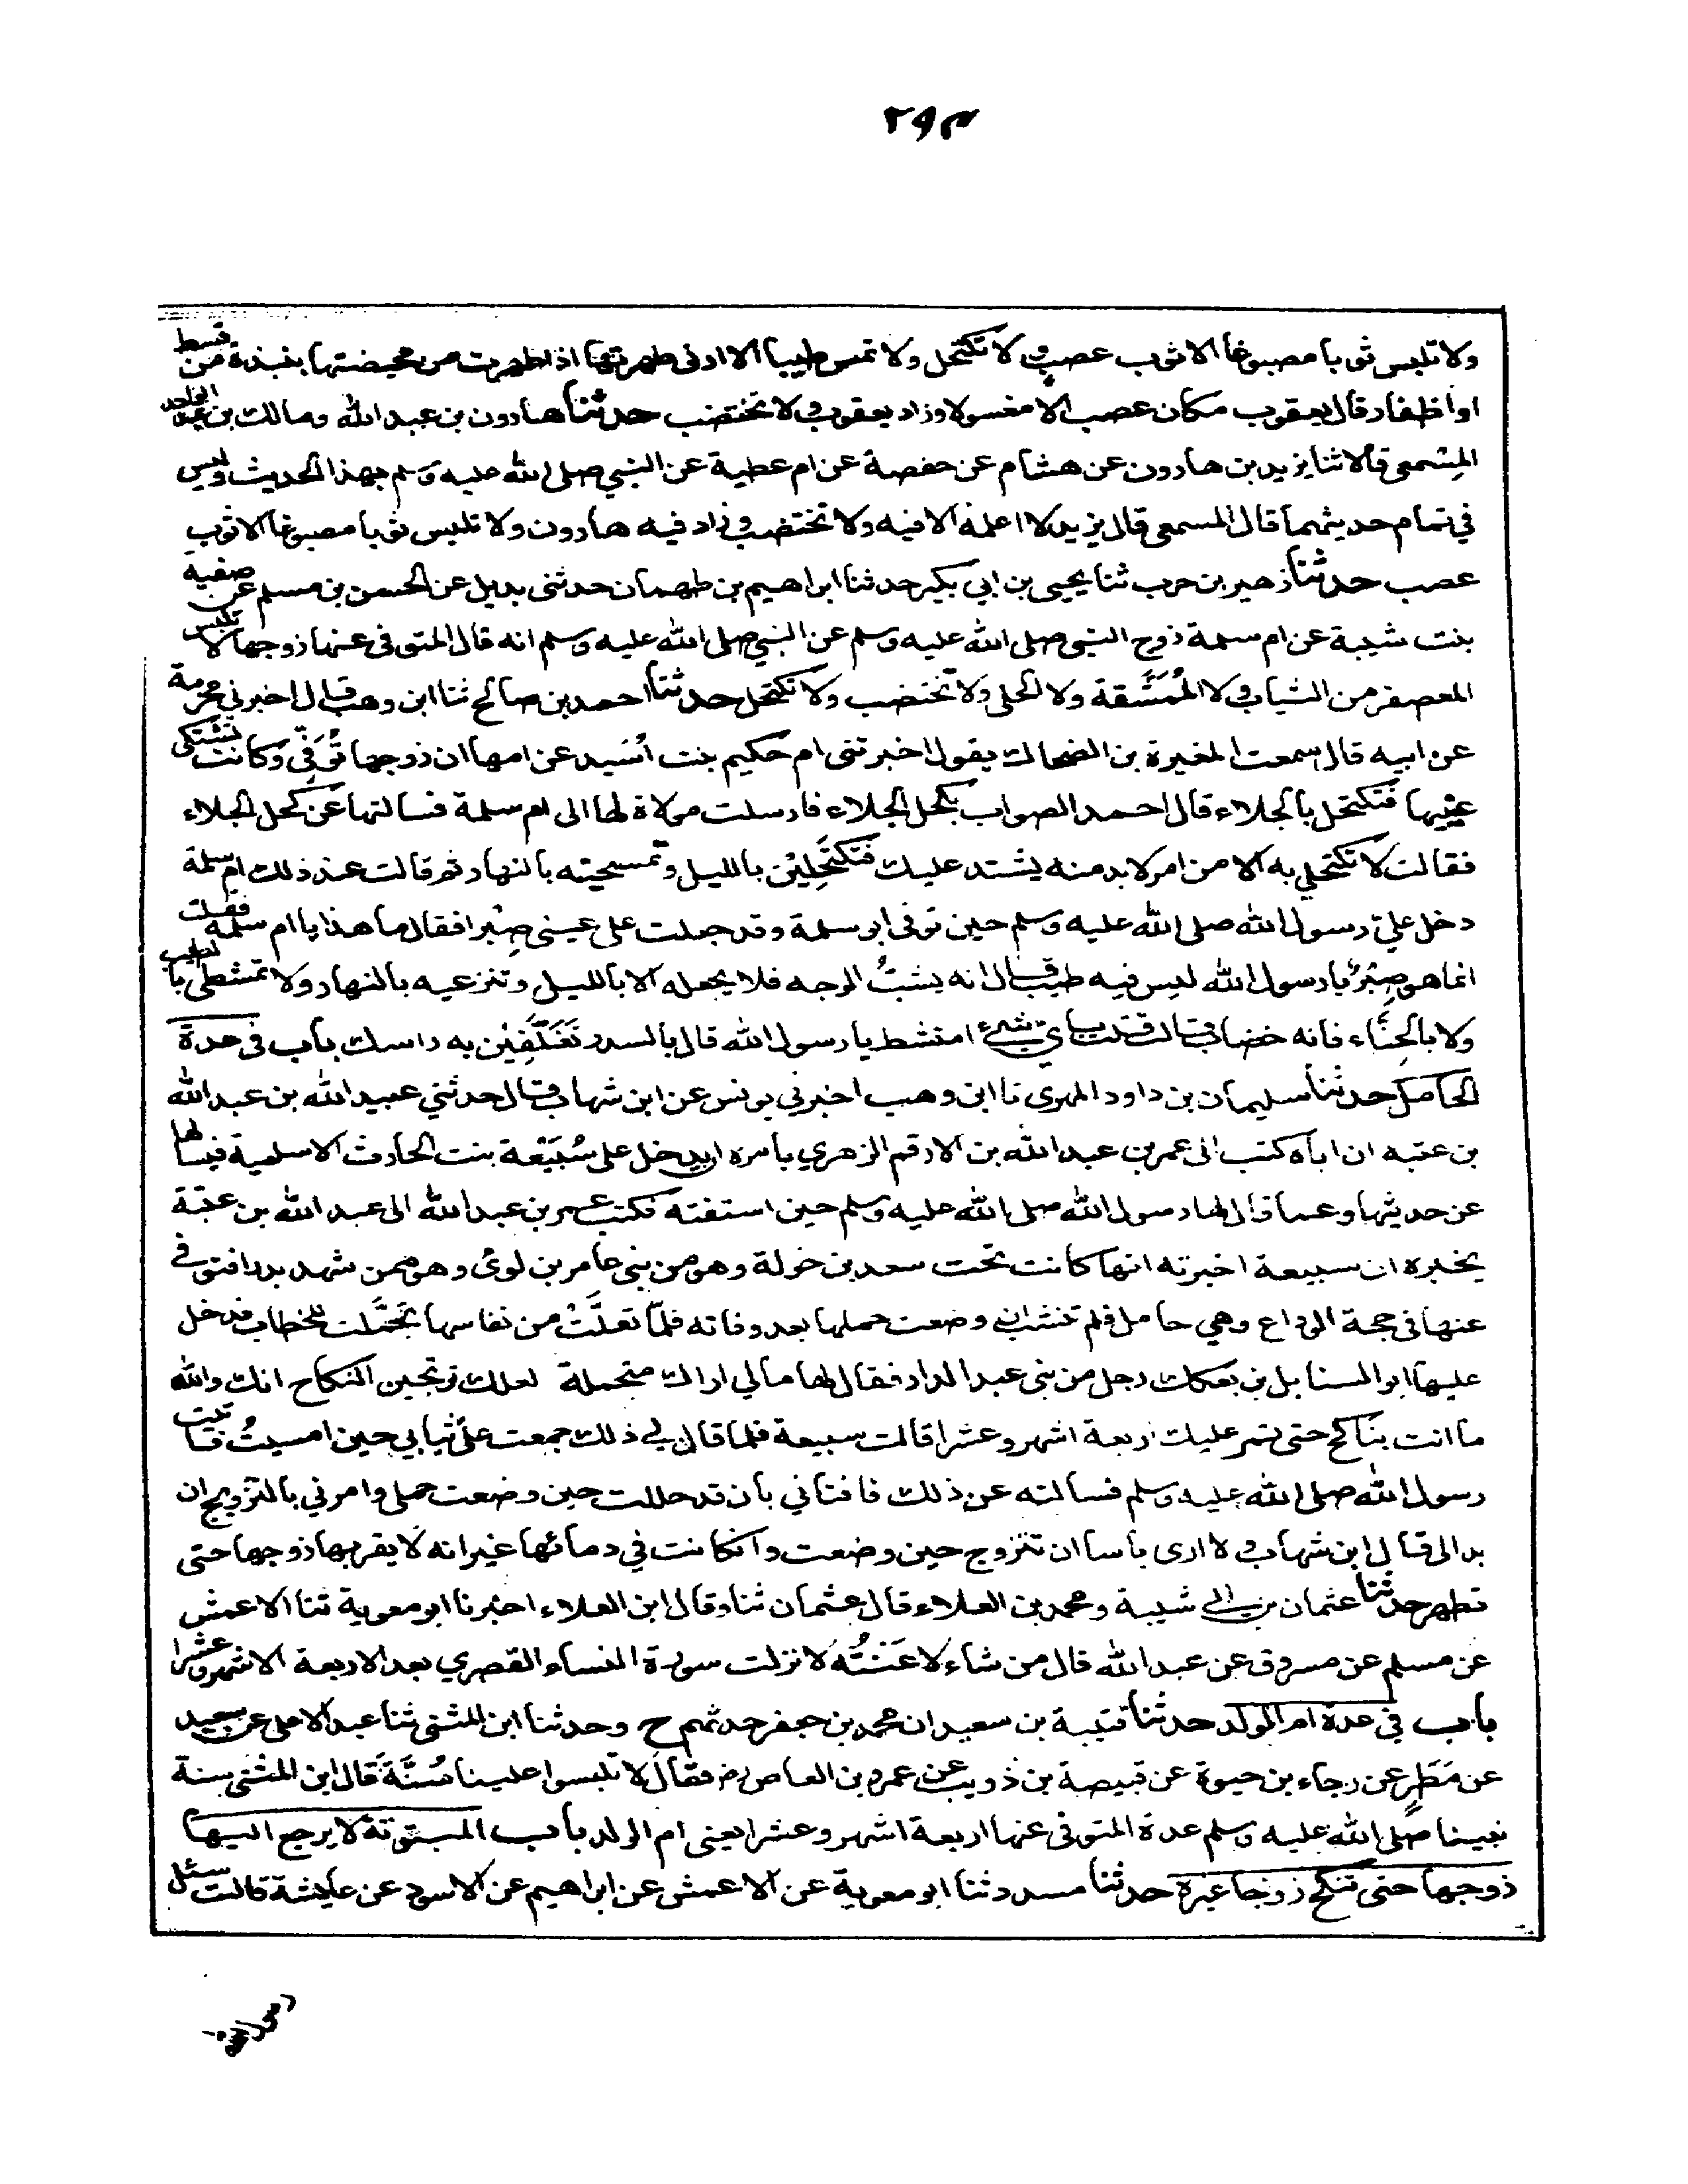 ٢٩٣
ولا تلبس ثوبا مصبوغا الا ثوب عصب ولا تكتحل ولا تمس طيبا الا ادنى طهرتها اذا طهرت من محيضتها بنبذة من قسط
او اظفار قال يعقوب مكان عصب الا مغسولا وزاد يعقوب ولا تختضب حدثنا هارون بن عبد الله ومالك بن عبد الواحد
المِسْمَعي قالا ثنا يزيد بن هارون عن هشام عن حفصة عن ام عطية عن النبي صلى الله عليه وسلم بهذا الحديث وليس
في تمام حديثهما قال المسمعي قال يزيد لا اعلمه الا فيه ولا تختضب وزاد فيه هارون ولا تلبس ثوبا مصبوغا الا ثوب
عصب حدثنا زهير بن حرب ثنا يحيى بن ابي بكير حدثنا ابراهيم بن طهمان حدثنى بديل عن الحسن بن مسلم عن صفية
بنت شيبة عن ام سلمة زوج النبي صلى الله عليه وسلم عن النبي صلى الله عليه وسلم انه قال المتوفى عنها زوجها لا تلبس
المعصفر من الثياب ولا المُمَشَّقة ولا الحلي ولا تختضب ولا تكتحل حدثنا احمد بن صالح ثنا ابن وهب قال اخبرني مخرمة
عن ابيه قال سمعت المغيرة بن الضحاك يقول اخبرتنى ام حكيم بنت اُسَيد عن امها ان زوجها تُوُفّي وكانت تشتكي
عينيها فتكتحل بالجلاء قال احمد الصواب بكحل الجلاء فارسلت مولاة لها الى ام سلمة فسالتها عن كحل الجلاء
فقالت لا تكتحلي به الا من امر لابد منه يشتد عليك فتكتَحِليْن بالليل وتمسحينه بالنهار ثم قالت عند ذلك ام سلمة
دخل عليّ رسول الله صلى الله عليه وسلم حين توفى ابو سلمة وقد جعلت على عيني صِبْرا فقال ما هذا يا ام سلمة فقلت
انما هو صِبْرٌ يا رسول الله ليس فيه طيب قال انه يشبُّ الوجه فلا يجعله الا بالليل وتنزعيه بالنهار ولا تمتشطي بالطيب
ولا بالحِنّاء فانه خضاب قالت قلت باي شيء امتشط يا رسول الله قال بالسدر تَغَلَّفِيْن به راسك باب فى عدة
الحامل حدثنا سليمان بن داود المهرى نا ابن وهب اخبرني يونس عن ابن شهاب قال حدثني عبيد الله بن عبد الله
بن عتبه ان اباه كتب الى عمر بن عبد الله بن الارقم الزهري يامره ان يدخل على سُبَيْعة بنت الحارث الاسلمية فيسالها
عن حديثها وعما قال لها رسول الله صلى الله عليه وسلم حين استفتته فكتب عمر بن عبد الله الى عبد الله بن عتبة
يخبره ان سبيعة اخبرته انها كانت تحت سعد بن خولة وهو من بني عامر بن لوئ وهو ممن شهد بدرا فتوفي
عنها في حجة الوداع وهي حامل فلم تنشب ان وضعت حملها بعد وفاته فلمّا تعلَّتْ من نفاسها تَجَمَّلت للخطاب فدخل
عليها ابو السنابل بن بعكك رجل من بنى عبد الدار فقال لها مالي اراك متجملة لعلك ترتجين النكاح انك والله
ما انت بناكح حتى تمر عليك اربعة اشهر وعشرا قالت سبيعة فلما قال لي ذلك جمعت علىّ ثيابي حين امسيتُ فاتيت
رسول الله صلى الله عليه وسلم فسالته عن ذلك فافتاني بان قد حللت حين وضعت حملي وامرني بالتزويج ان
بدا لى قال ابن شهاب ولا ارى باسا ان تتزوج حين وضعت وان كانت في دمائها غير انه لا يقربها زوجها حتى
تطهر حدثنا عثمان بن ابي شيبة ومحمد بن العلاء قال عثمان ثنا وقال ابن العلاء اخبرنا ابو معوية ثنا الاعمش
عن مسلم عن مسروق عن عبد الله قال من شاء لاعَنْتُه لانزلت سورة النساء القصرى بعد الاربعة الاشهر وعشرا
باب في عدة ام الولد حدثنا قتيبة بن سعيد ان محمد بن جعفر حدثهم ح وحدثنا ابن المثنى ثنا عبد الاعلى عن سعيد
عن مَطَرٍ عن رجاء بن حيوة عن قبيصة بن ذويب عن عمرو بن العاص رض فقال لا تلبسوا علينا سُنَّةً قال ابن المثنى سنة
نبينا صلى الله عليه وسلم عدة المتوفى عنها اربعة اشهر وعشرا يعني ام الولد باب المبتوتة لا يرجع اليها
زوجها حتى تنكح زوجا غيره حدثنا مسدد ثنا ابو معوية عن الاعمش عن ابراهيم عن الاسود عن عايشة قالت سئل